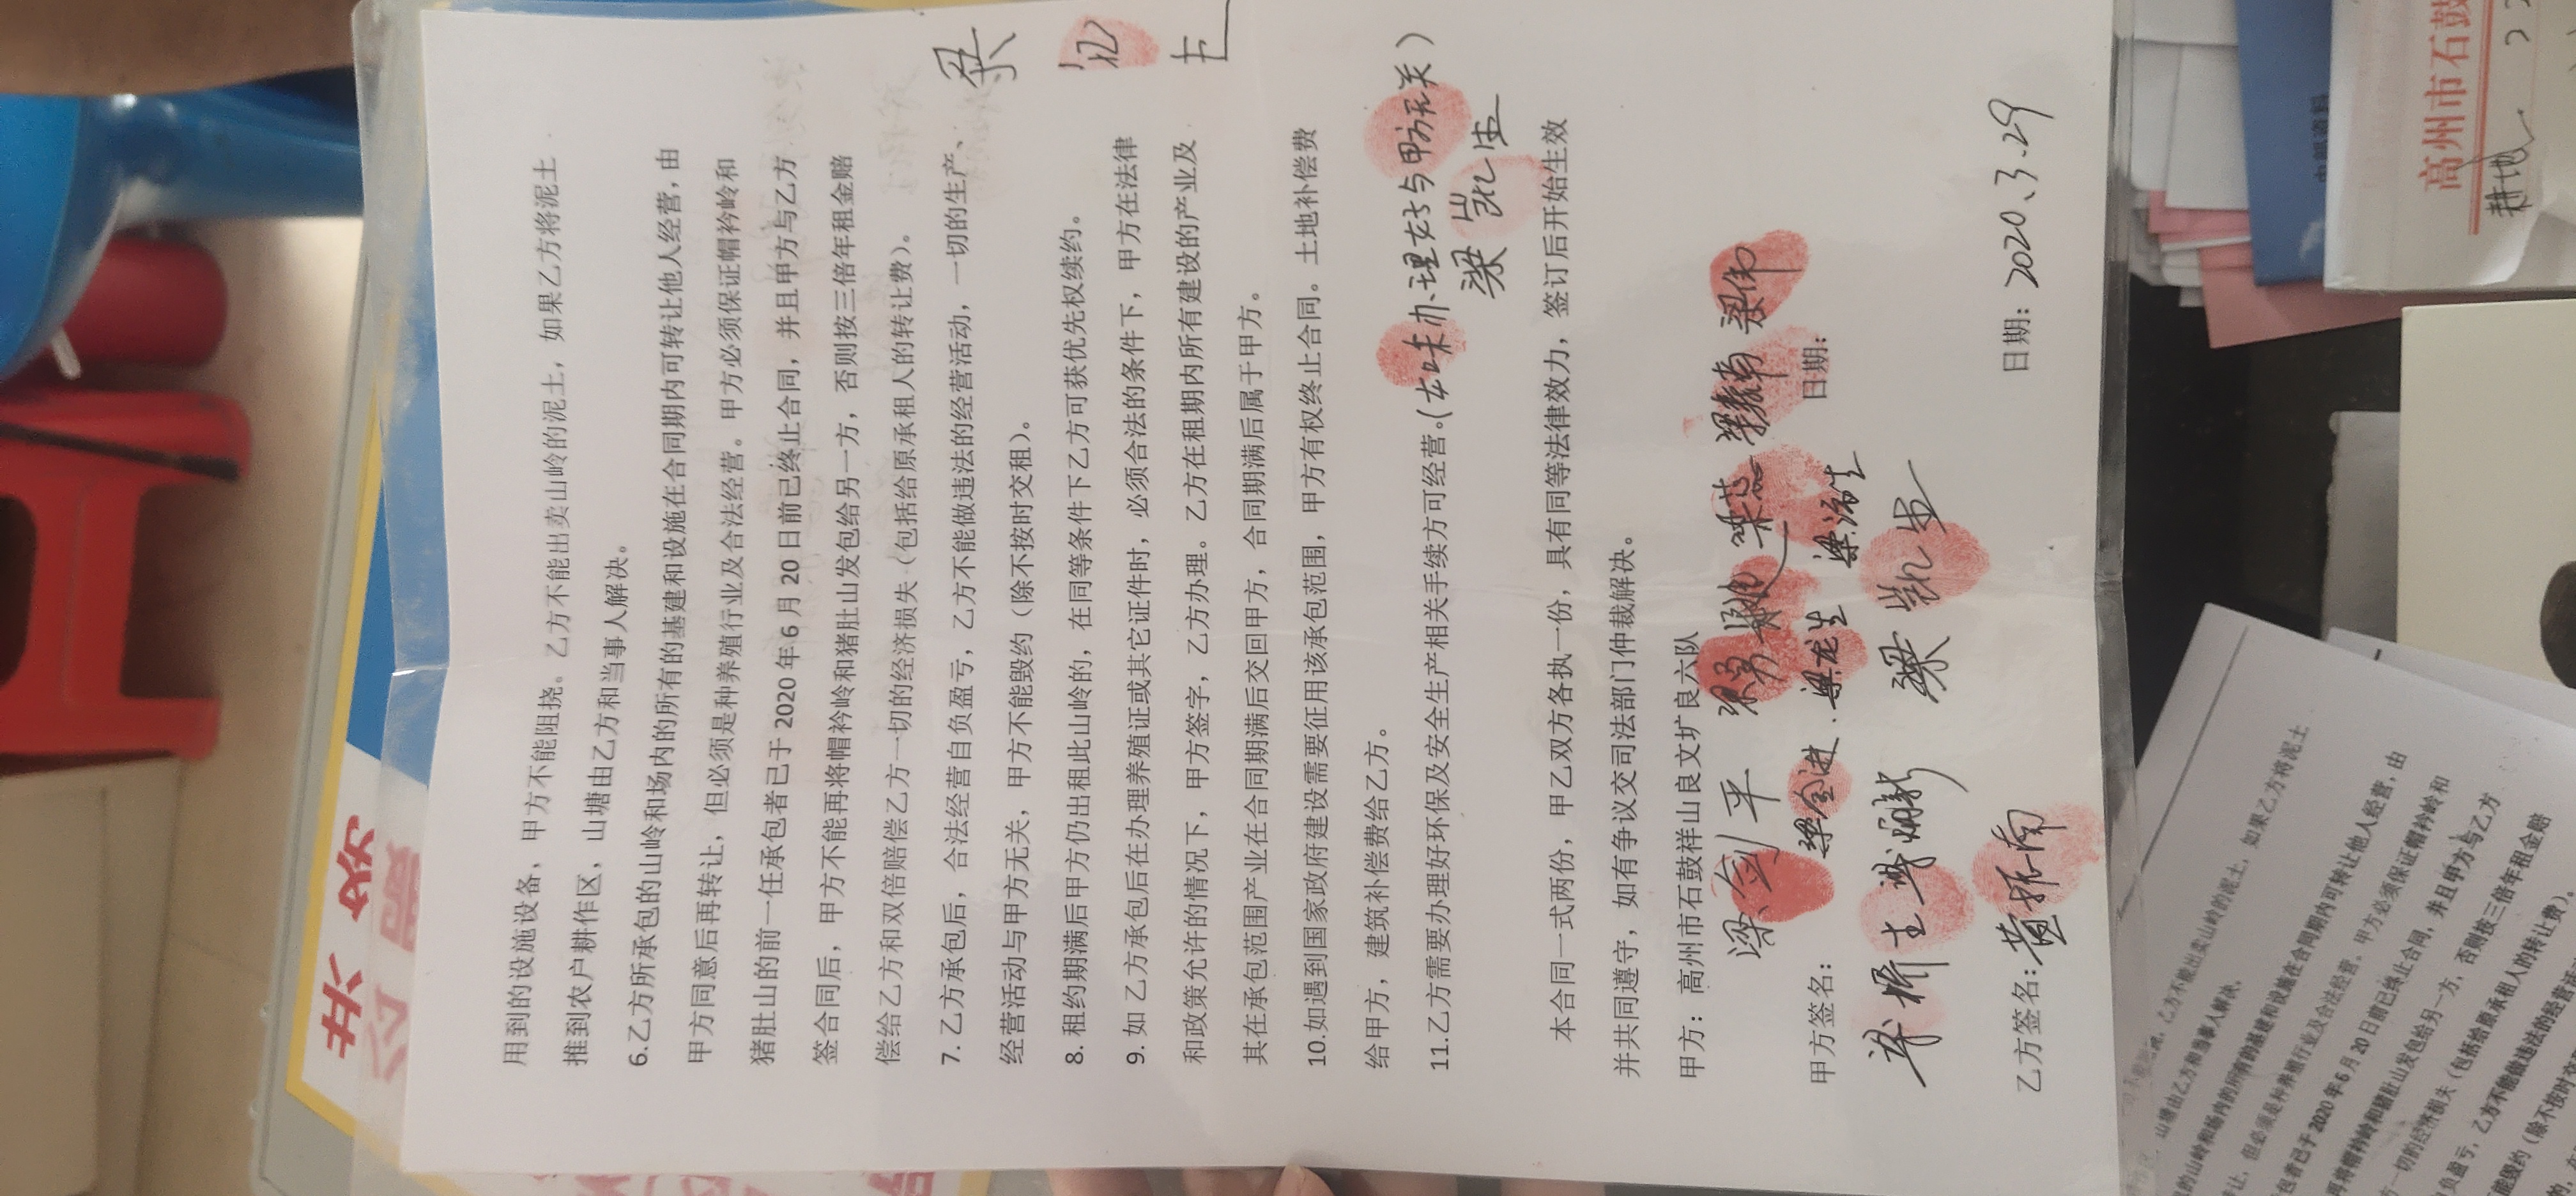 用到的设施设备，甲方不能阻挠。乙方不能出卖山岭的泥土，如果乙方将泥土
推到农户耕作区，山塘由乙方和当事人解决。
6.乙方所承包的山岭和场内的所有的基建和设施在合同期内可转让他人经营，由
甲方同意后再转让，但必须是种养殖行业及合法经营。甲方必须保证帽衿岭和
猪肚山的前一任承包者已于 2020 年 6 月 20 日前已终止合同，并且甲方与乙方
签合同后，甲方不能再将帽衿岭和猪肚山发包给另一方，否则按三倍年租金赔
偿给乙方和双倍赔偿乙方一切的经济损失（包括给原承租人的转让费）。
7. 乙方承包后，合法经营自负盈亏，乙方不能做违法的经营活动，一切的生产、
经营活动与甲方无关，甲方不能毁约（除不按时交租）。
8. 租约期满后甲方仍出租此山岭的，在同等条件下乙方可获优先权续约。
9. 如 乙方承包后在办理养殖证或其它证件时，必须合法的条件下，甲方在法律
和政策允许的情况下，甲方签字，乙方办理。乙方在租期内所有建设的产业及
其在承包范围产业在合同期满后交回甲方，合同期满后属于甲方。
10.如遇到国家政府建设需要征用该承包范围，甲方有权终止合同。土地补偿费
给甲方，建筑补偿费给乙方。
11.乙方需要办理好环保及安全生产相关手续方可经营。(如未办理好与甲方无关)
梁凯生
本合同一式两份，甲乙双方各执一份，具有同等法律效力，签订后开始生效
并共同遵守，如有争议交司法部门仲裁解决。
甲方：高州市石鼓祥山良文圹良六队
梁剑平
梁伟
甲方签名：
日期：
梁金进
梁龙生
梁凯生
乙方签名：黄振南
日期：2020、3.29
高州市石鼓
耕地
山塘由乙方和当事人解决。